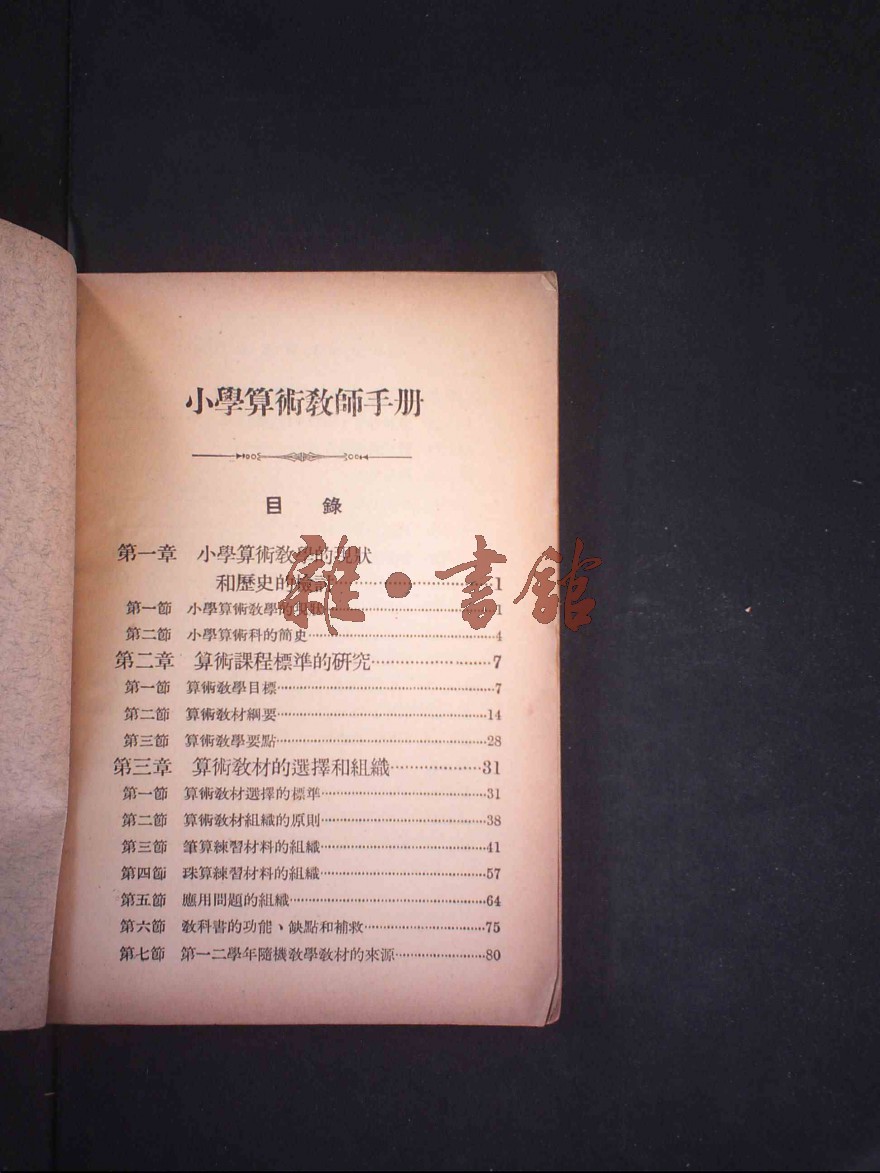 小學算術教師手册
目錄
第一章 小學算術教學的現狀
和歷史的檢討……………………1
第一節 小學算術教學的現狀……………………1
第二節 小學算術科的简史……………………4
第二章 算術課程標準的研究……………………7
第一節 算術教學目標……………………7
第二節 算術教材綱要……………………14
第三節 算術教學要點……………………28
第三章 算術教材的選擇和組織……………………31
第一節 算術教材選擇的標準……………………31
第二節 算術教材組織的原則……………………38
第三節 筆算練習材料的組織……………………41
第四節 珠算練習材料的組織……………………57
第五節 應用問題的組織……………………64
第六節 教科書的功能、缺點和補救……………………75
第七節 第一二學年隨機教學教材的來源……………………80
雜·書館